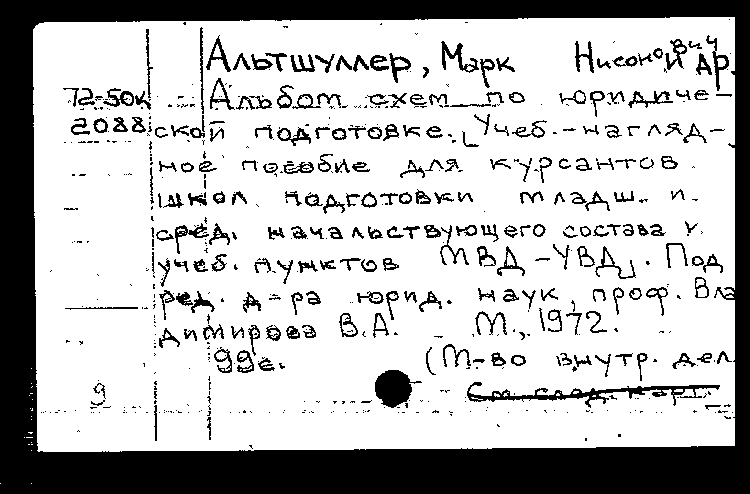 Альтшуллер, Марк Нисонович
и др.
72-50к Альбом схем по юридиче-
2088 ской подготовке. [Учеб.-нагляд-
ное пособие для курсантов
школ подготовки младш. и
сред. начальствующего состава и
учеб. пунктов МВД-УВД]. Под
ред. д-ра юрид. наук, проф. Вла
димирова В.А. М., 1972.
99с. (М-во внутр. дел
9 См. след. карт.